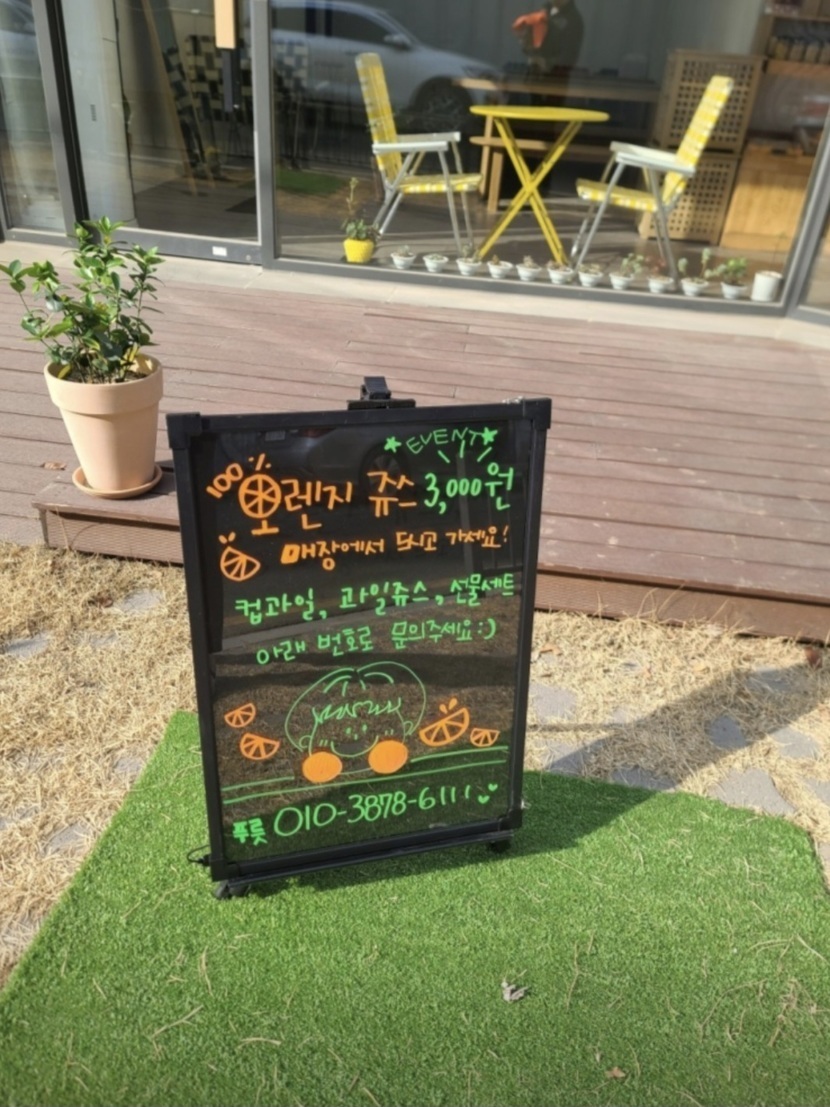 ★EVENT★
100% 오렌지 쥬스 3,000원
매장에서 드시고 가세요!
컵과일, 과일쥬스, 선물세트
아래 번호로 문의주세요:)
푸릇 010-3878-6111